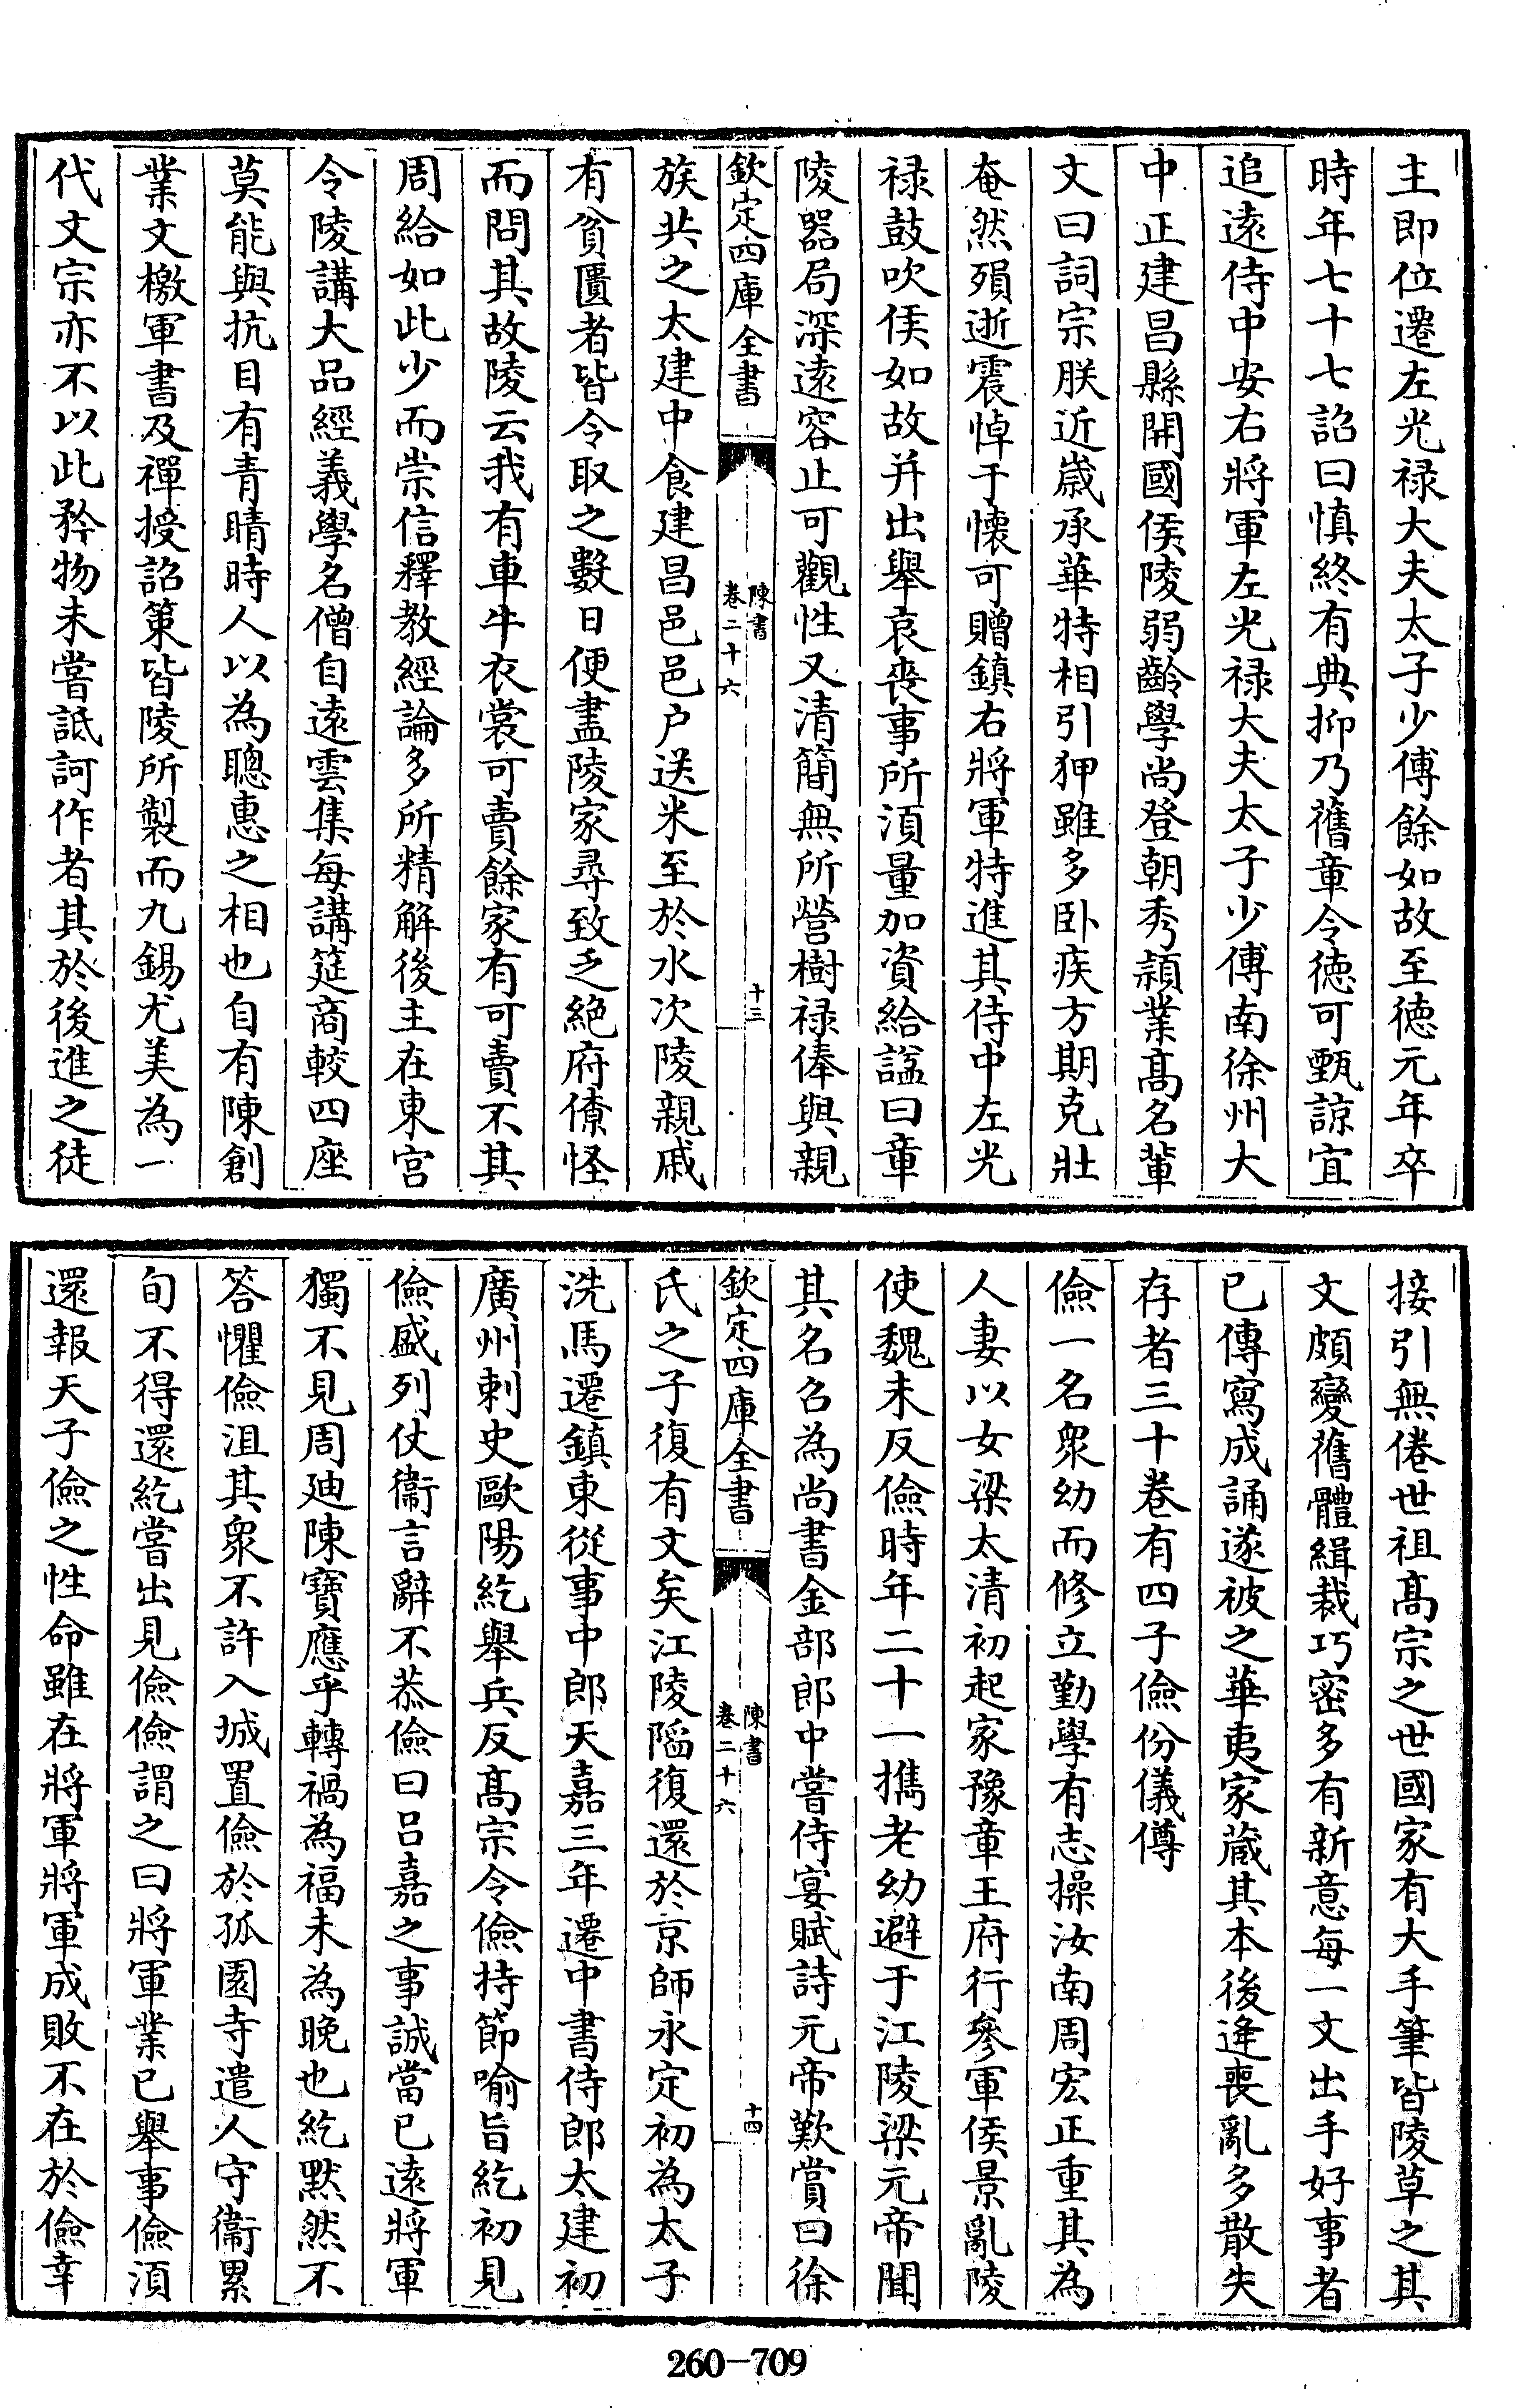 主即位遷左光禄大夫太子少傅餘如故至徳元年卒
時年七十七詔曰慎終有典抑乃舊章令徳可甄諒宜
追遠侍中安右將軍左光禄大夫太子少傅南徐州大
中正建昌縣開國侯陵弱齡學尚登朝秀頴業髙名輩
文曰詞宗朕近歲承華特相引狎雖多卧疾方期克壯
奄然殞逝震悼于懷可贈鎮右將軍特進其侍中左光
禄鼓吹侯如故并出舉哀喪事所須量加資給諡曰章
陵器局深遠容止可觀性又清簡無所營樹禄俸與親
欽定四庫全書
陳書
卷二十六
十三
族共之太建中食建昌邑邑户送米至於水次陵親戚
有貧匱者皆令取之數日便盡陵家尋致乏絶府僚怪
而問其故陵云我有車牛衣裳可賣餘家有可賣不其
周給如此少而崇信釋教經論多所精解後主在東宮
令陵講大品經義學名僧自遠雲集每講筵商較四座
莫能與抗目有青睛時人以為聰惠之相也自有陳創
業文檄軍書及禪授詔策皆陵所製而九錫尤美為一
代文宗亦不以此矜物未嘗詆訶作者其於後進之徒
接引無倦世祖髙宗之世國家有大手筆皆陵草之其
文頗變舊體緝裁巧密多有新意每一文出手好事者
已傳寫成誦遂被之華夷家藏其本後逢喪亂多散失
存者三十卷有四子儉份儀僔
儉一名衆幼而修立勤學有志操汝南周宏正重其為
人妻以女梁太清初起家豫章王府行參軍侯景亂陵
使魏未反儉時年二十一攜老幼避于江陵梁元帝聞
其名召為尚書金部郎中嘗侍宴賦詩元帝歎賞曰徐
欽定四庫全書
陳書
卷二十六
十四
氏之子復有文矣江陵䧟復還於京師永定初為太子
洗馬遷鎮東從事中郎天嘉三年遷中書侍郎太建初
廣州刺史歐陽紇舉兵反髙宗令儉持節喻旨紇初見
儉盛列仗衞言辭不恭儉曰吕嘉之事誠當已遠將軍
獨不見周廸陳寶應乎轉禍為福未為晚也紇默然不
答懼儉沮其衆不許入城置儉於孤園寺遣人守衞累
旬不得還紇嘗出見儉儉謂之曰將軍業已舉事儉須
還報天子儉之性命雖在將軍將軍成敗不在於儉幸
260-709